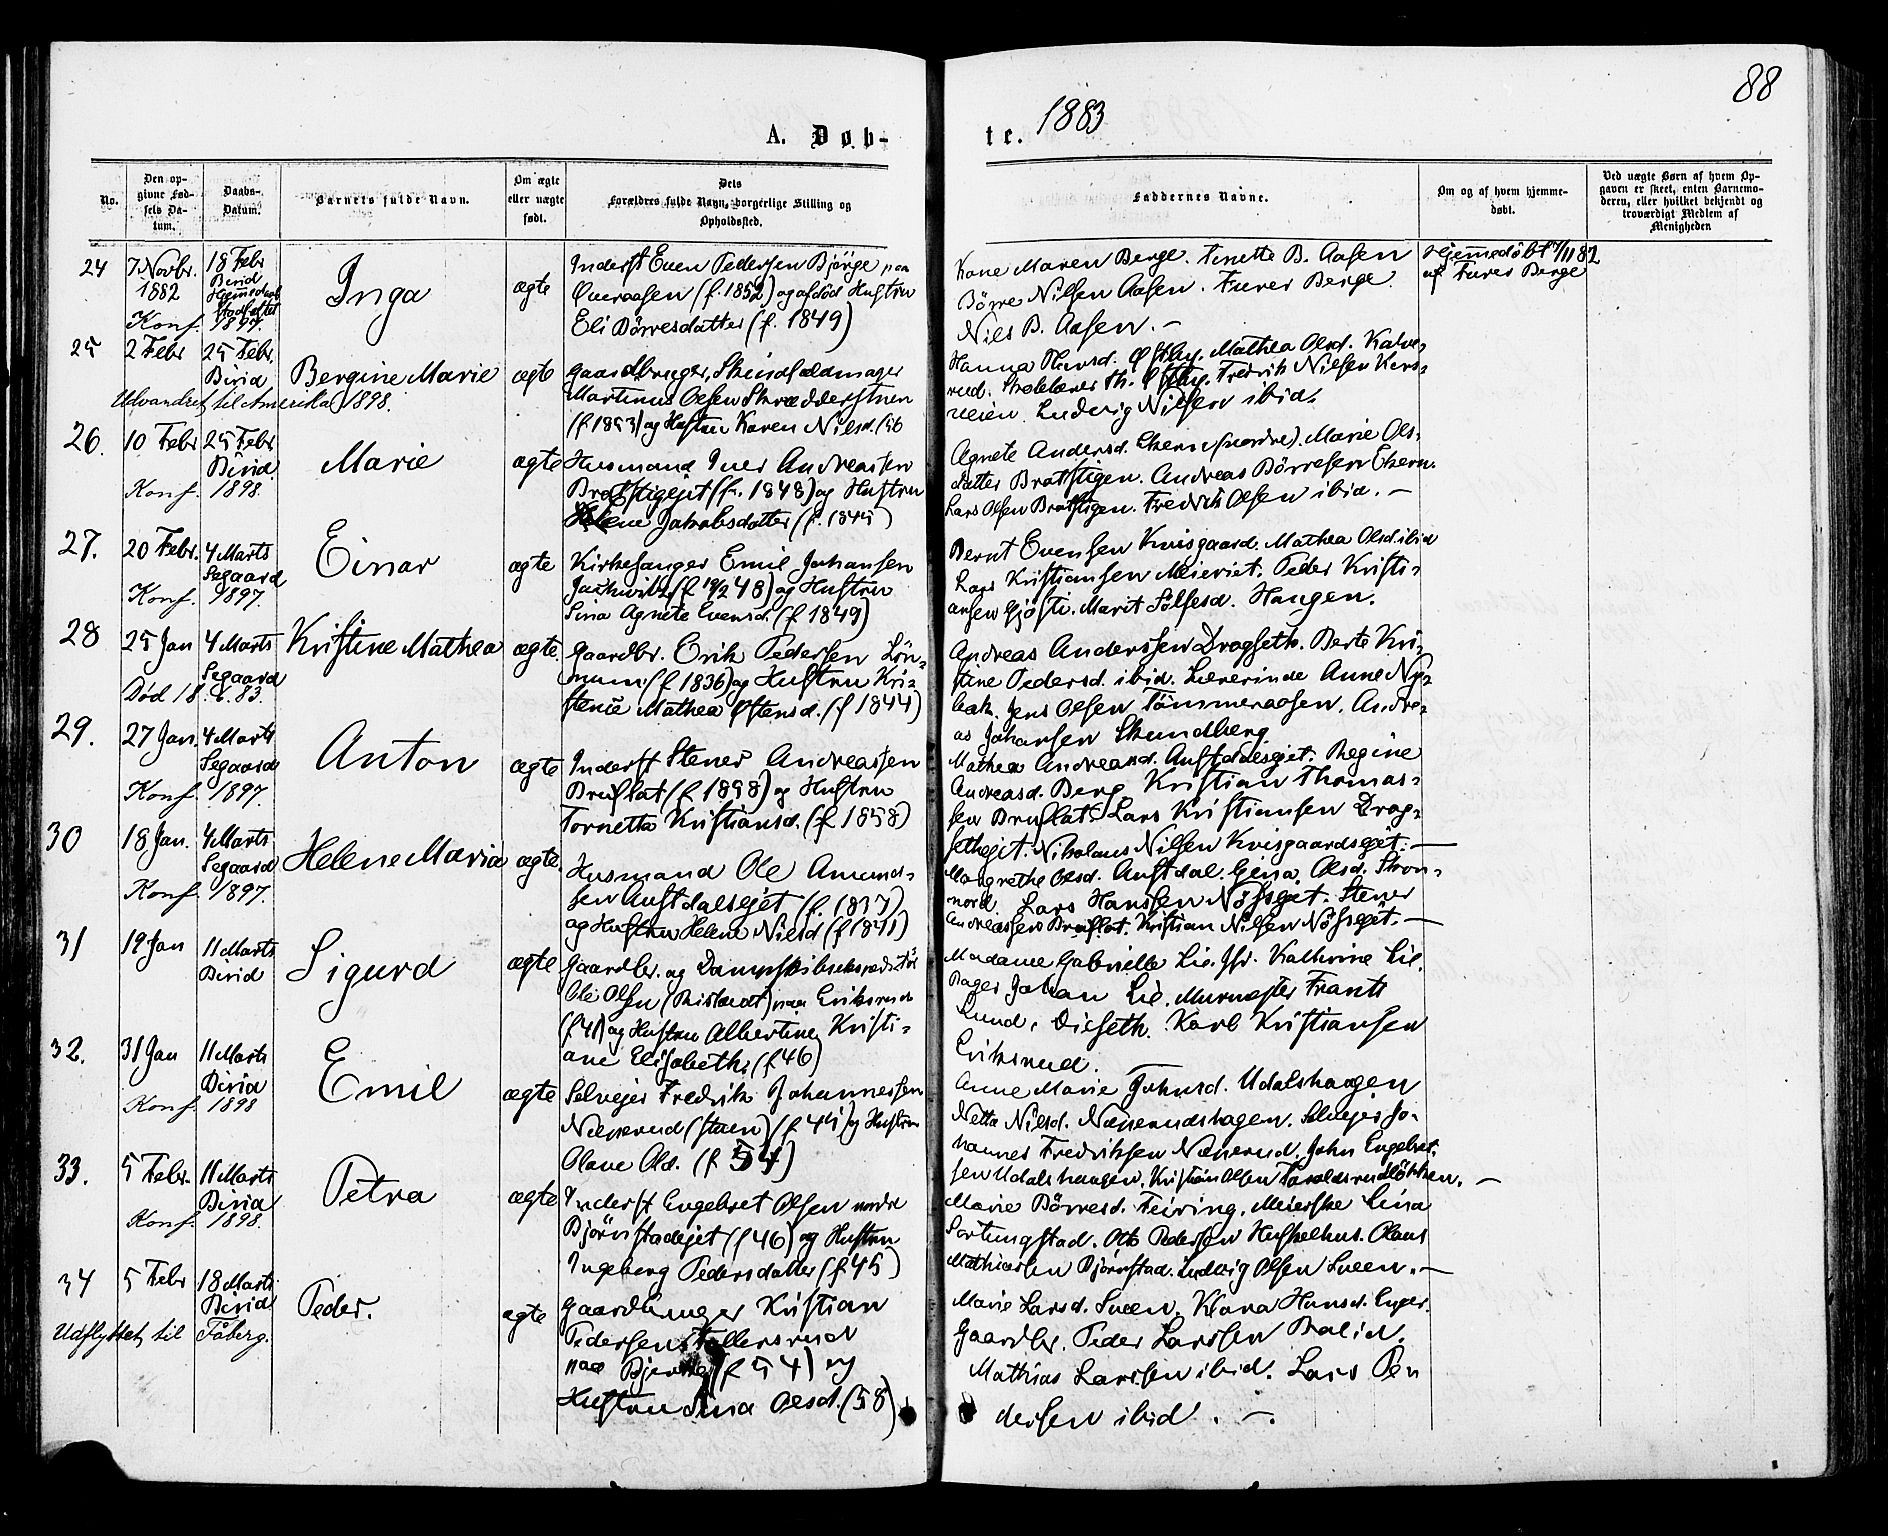 88
1883
A. Døb-
te.
No.
Den op-
givne Fød-
sels Da-
tum.
Daabs-
Datum.
Barnets fulde Navn.
Om ægte
eller uægte
født.
Dets
Forældres fulde Navn, borgerlige Stilling og
Opholdssted.
Faddernes Navne.
Om og af hvem hjemme-
døbt.
Ved uægte Børn af hvem Op-
gaven er skeet, enten Barnemo-
deren, eller hvilket bekjendt og
troværdigt Medlem af
Menigheden
24
7 Novbr.
1882
Konf. 1897.
18 Febr
Birid
Hjemmedaab
Stadfæstet
Inga
ægte
Inderst Even Pedersen Bjørge paa
Overaasen (f. 1852) og afdød Hustru
Eli Börresdatter (f. 1849)
Kone Maren Berge. Tinette B. Aasen
Börre Nilsen Aasen. Furer Berge.
Niels B. Aasen. —
Hjemmedöbt 7/11 82
af Furer Berge
25
2 Febr
25 Febr.
Birid
Udvandret til Amerika 1898.
Bergine Marie
ægte
Gaardbruger, Skindfældmager
Martinus Olsen Skrædderstuen
(f 1853) og Hustru Karen Nilsd. (56
Hanna Thorsd. Østby. Mathea Olsd. Kalve-
rud. Skolelærer Th. Østby. Fredrik Nilsen Kors-
veien. Ludvig Nilsen ibid.
26.
10 Febr
25 Febr
Birid.
Konf. 1898.
Marie
ægte
Husmand Iver Andreassen
Bratstigejet (f. 1848) og Hustru
Helene Jakobsdatter (f. 1845)
Agnete Andersd. Ekern (nordre). Marie Ols-
datter Bratstigen. Andreas Börresen Ekern.
Lars Olsen Bratstigen. Fredrik Olsen ibid. —
27.
20 Febr.
4 Marts
Segaard
Konf. 1897.
Einar
ægte
Kirkesanger Emil Johansen
(f 19/2 48) og Hustru
Sina Agnete Evensd. (f 1849)
Bernt Evensen Kvisgaard. Mathea Olsd. ibid
Lars Kristiansen Meieriet. Peder Kristi-
ansen Gjøsti. Marit Sølfesd. Haugen.
28
25 Jan
4 Marts
Segaard
Død 18 83.
Kristine Mathea
ægte.
Gaardbr. Erik Pedersen Lön-
num. (f 1836) og Hustru Kri-
stence Mathea Østensd. (f 1844)
Andreas Anderssen Dragseth. Berte Kri-
stine Pedersd. ibid. Lærerinde Anne Ny-
bak. Jens Olsen Tömmeraasen. Andre-
as Johansen Skundberg
29.
27 Jan.
4 Marts
Segaard
Konf. 1897.
Anton
ægte
Inderst Stener Andreassen
Bruflat (f 1898) og Hustru
Tornetta Kristiansd. (f 1858)
Mathea Andreasd. Austdalsejet. Regine
Andreasd. Berg Kristian Thomas-
sen Bruflat. Lars Kristiansen Drag-
sethejet. Nikolaus Nilsen Kvisgaardsejet. —
30
18 Jan.
4 Marts
Segaard
Konf. 1897.
Helene Maria
ægte.
Husmand Ole Amund-
sen Austdalsejet (f. 1837)
og Hustru Helene Nielsd. (f 1841)
Margrethe Olsd. Austdal. Gina Olsd. Strom-
nord. Lars Hanssen Nössejet. Stener
Andreassen Bruflat. Kristian Nilsen Nössejet. —
31
19 Jan
11 Marts
Birid
Sigurd
ægte
Gaardbr. og Dampskibsexpeditör
Ole Olsen (Ristvedt) paa Eriksrud
(f. 41) og Hustru Albertine Kristi-
ane Elisabeth (f 46)
Madame Gabrielle Lie. Jfr. Kathrine Lie.
Bager Johan Lie. Murmester Frants
Lund, Dieseth. Karl Kristiansen
Eriksrud.
32.
31 Jan
11 Marts
Birid
Konf. 1898
Emil
ægte
Selvejer Fredrik Johannessen
Nænerud (stuen) (f 45) og Hustru
Olave Olsd. (f 54)
Anne Marie Johnsd. Udalshaugen
Netta Nilsd. Nænerudshagen. Selvejer Jo-
hannes Fredriksen Nænerud. John Engebret-
sen Udalshaugen. Kristian Olsen Taraldsrudløkken. —
33.
5 Febr.
11 Marts
Birid
Konf. 1898.
Petra
ægte
Inderst Engebret Olsen nordre
Bjørnstadejet (f 46) og Hustru
Ingeborg Pedersdatter (f 45)
Marie Börresd. Feiring. Meierske Lina
Sortungstad. Otto Pedersen Huskelhus. Olaus
Mathiassen Bjørnstad. Ludvig Olsen Sveen. —
34
5 Febr
18 Marts
Birid
Udflyttet til Fåberg.
Peder.
ægte
Gaardbruger Kristian
Pedersen Tollersrud
paa (f 54) og
Hustru Sina Olsd. (58)
Marie Larsd. Sveen. Klara Hansd. Enger.
Gaardbr. Peder Larssen Balid.
Mathias Larssen ibid. Lars Pe-
dersen ibid. —.